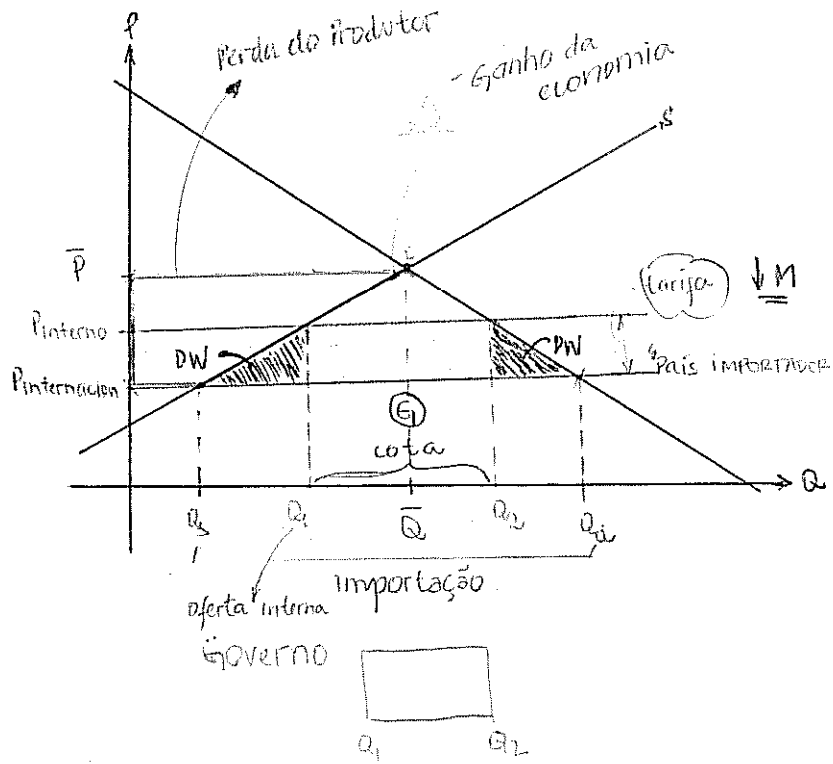 P
Perda do Produtor
Ganho da
economia
S
P̅
Pinterno
Pinternacion
DW
DW
tarifa
↓ M
País IMPORTADOR
cota
Q
Q1
Q̅
Q2
importação
oferta interna
Governo
Q1
Q2